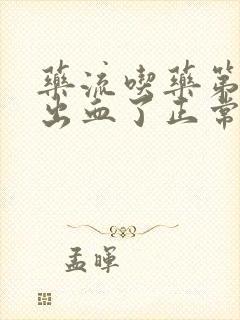 藥流喫藥第
出血了正常
孟暉